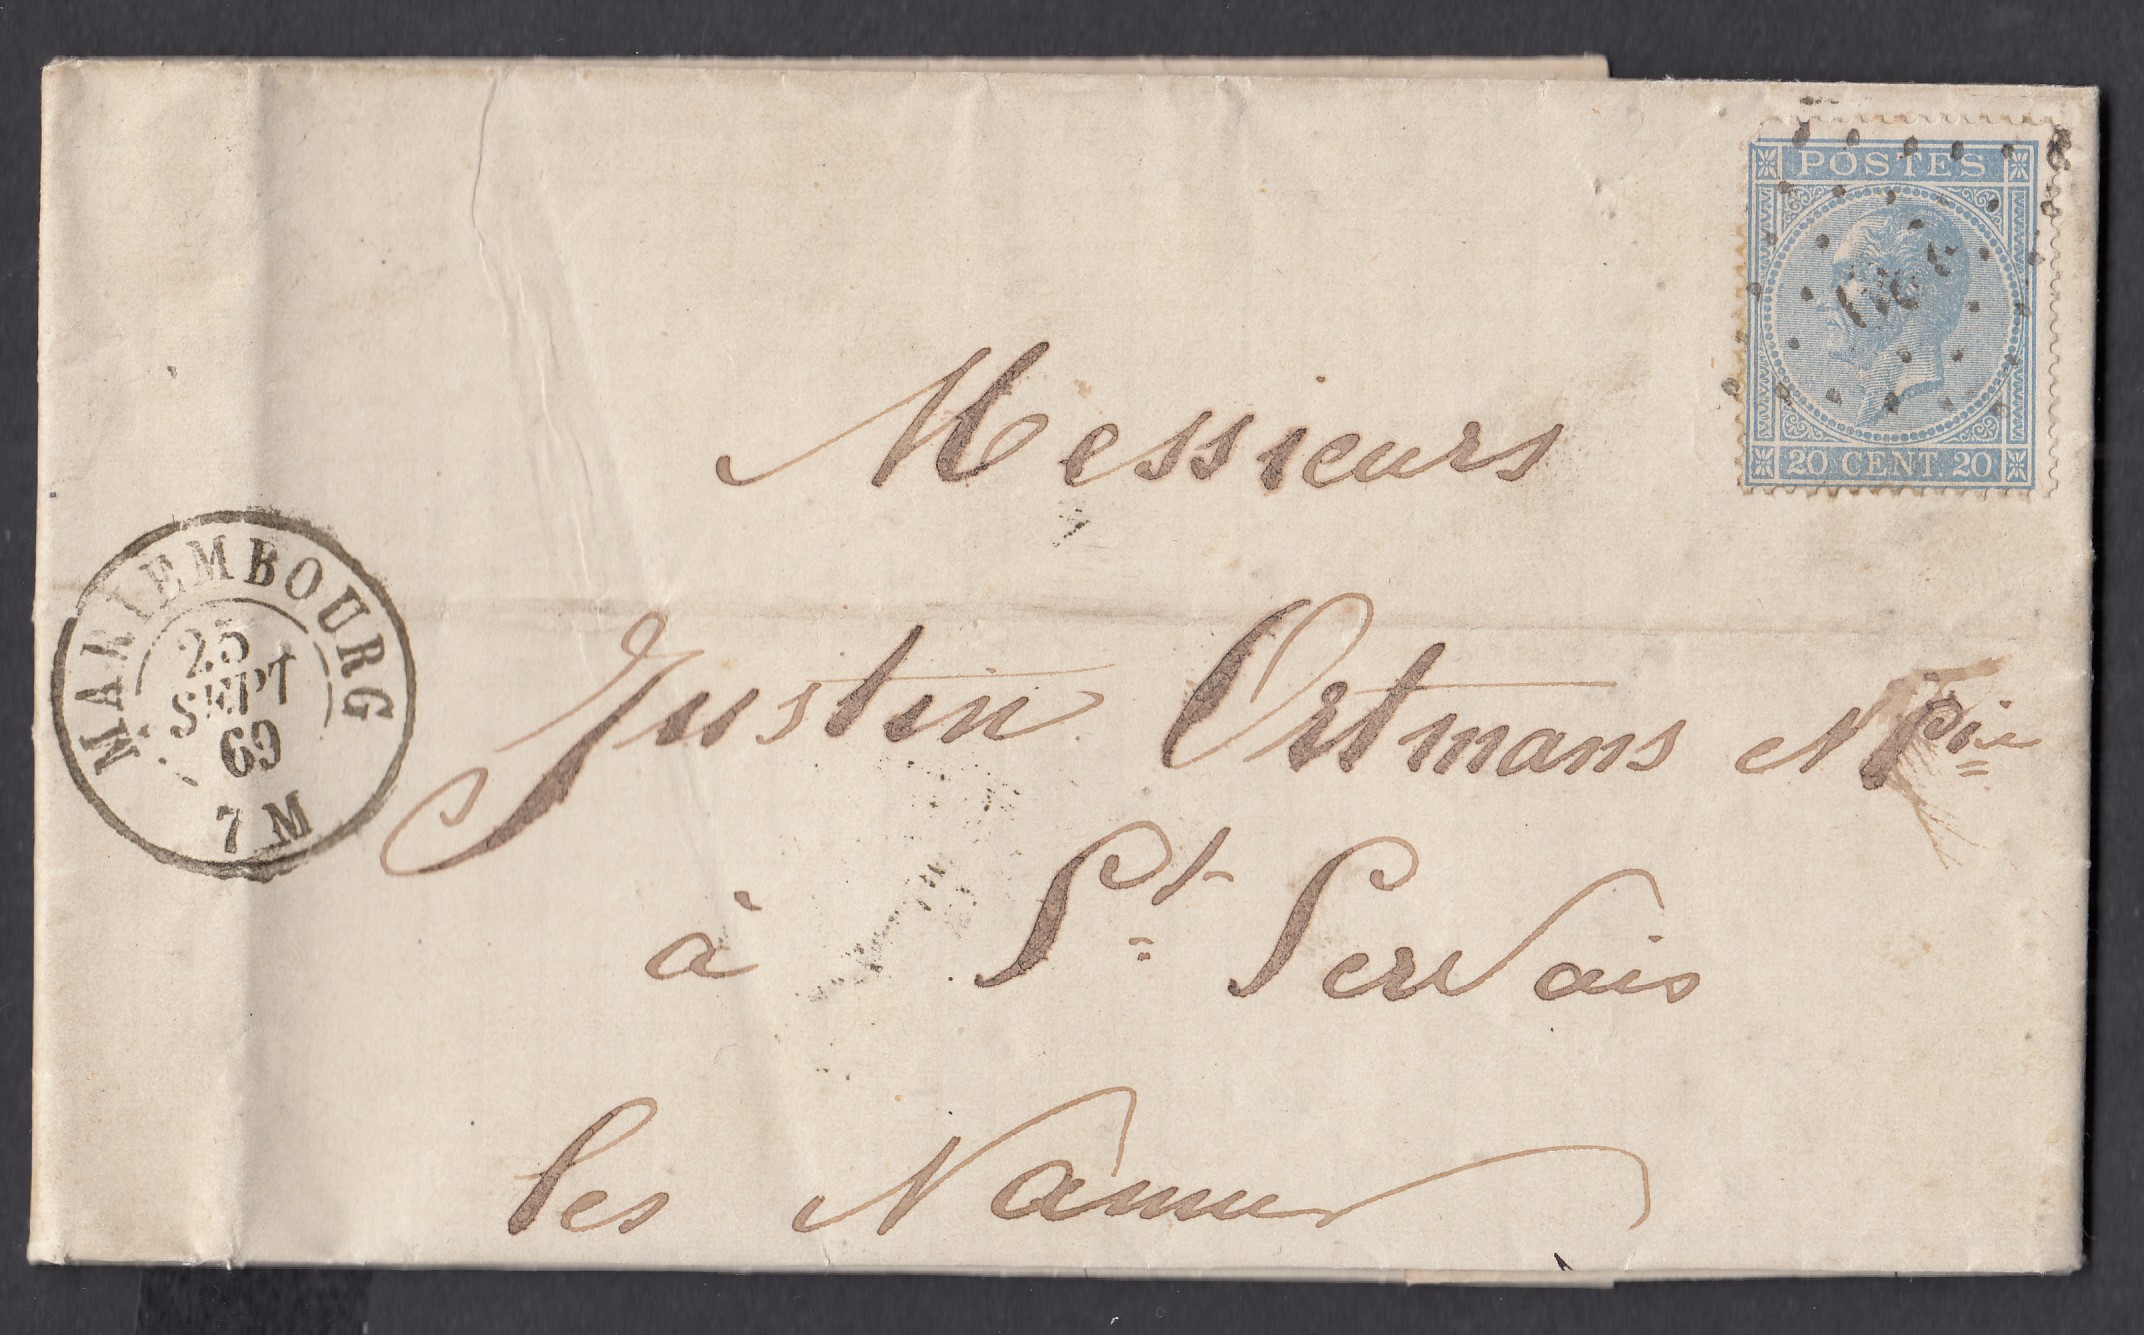 POSTES
20 CENT. 20
Messieurs
MARIEMBOURG
25
SEPT
69
7 M
Justin Ortmans & Cie
à St Servais
les Namur